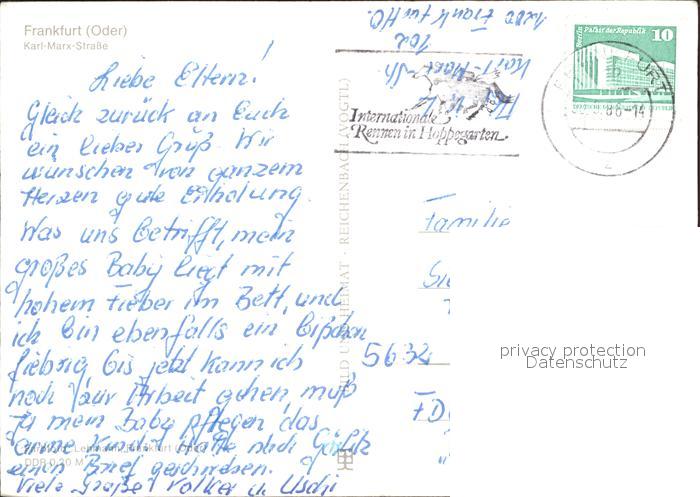 Frankfurt (Oder)
Karl-Marx-Straße
Liebe Eltern!
Gleich zurück an Euch
ein lieber Gruß. Wir
wünschen von ganzem
Herzen gute Erholung.
Was uns betrifft, mein
großes Baby liegt mit
hohem Fieber im Bett, und
ich bin ebenfalls ein bißchen
fiebrig bis jetzt kann ich
noch zur Arbeit gehen, muß
ja mein Baby pflegen, das
arme Kind. nach Görlitz
einen Brief geschrieben.
Viele Grüße Volker u. Uschi
DDR 0,20 M
BILD UND HEIMAT · REICHENBACH (VOGTL)
1200 Frankfurt/O.
102
Karl-Marx-Str.
Internationale
Rennen in Hoppegarten
Berlin Palast der Republik
10
86-14
Familie
5632
privacy protection
Datenschutz